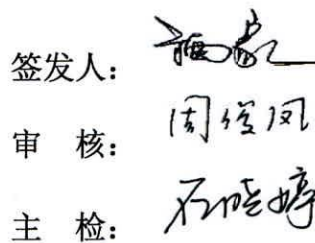 签发人：
审 核：周俊凤
主 检：石晓婷